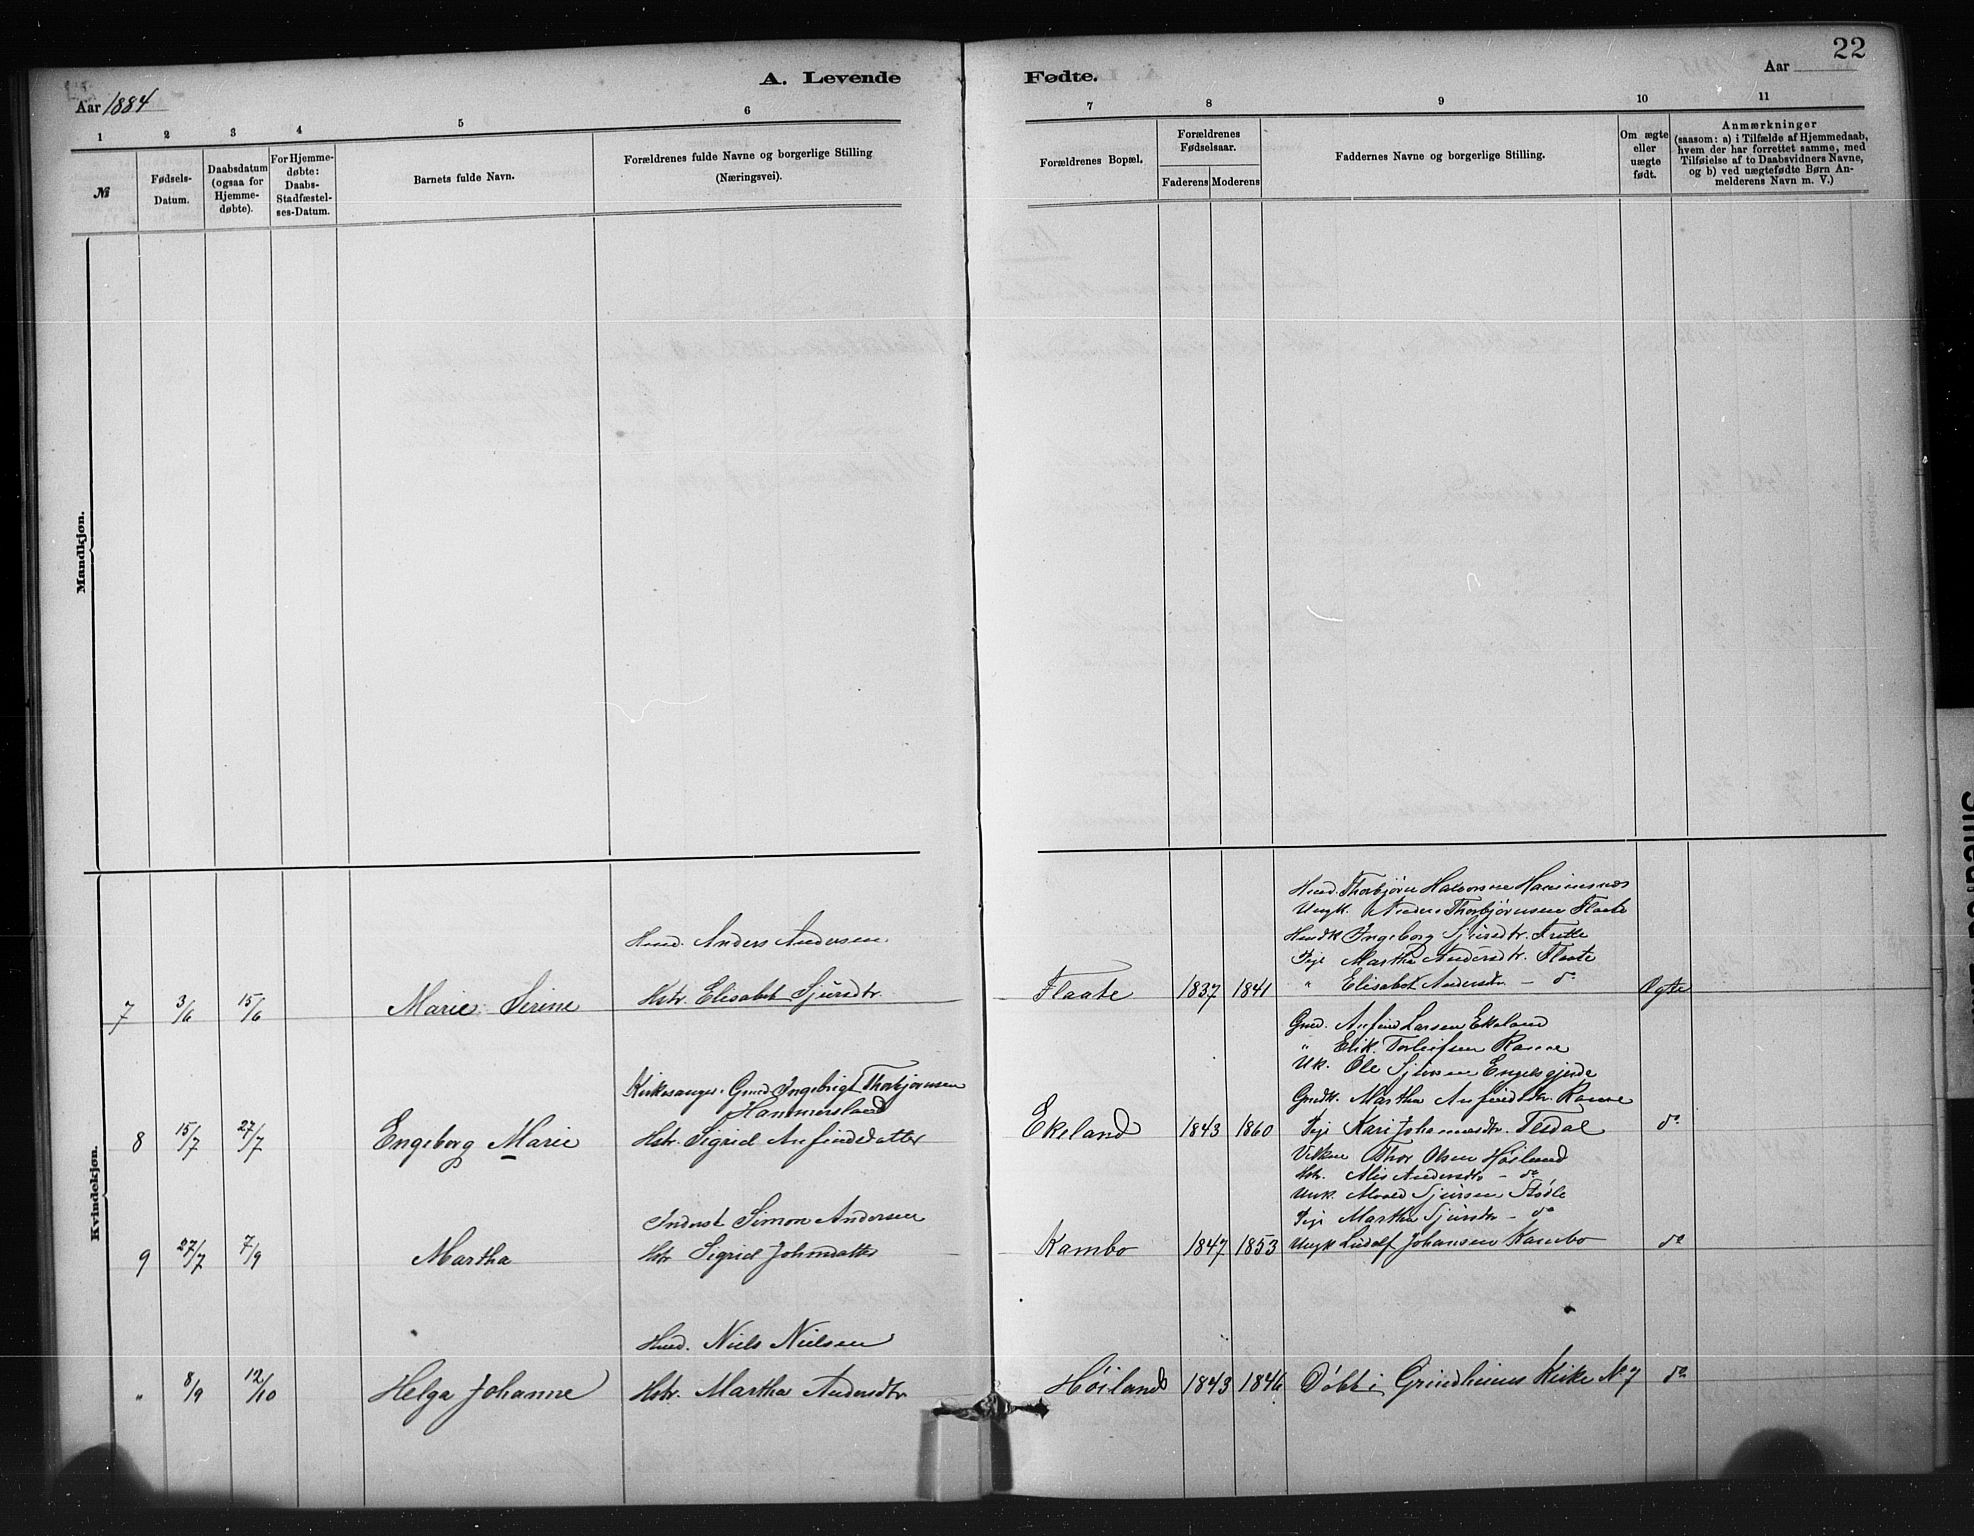 22
A. Levende
Fødte.
Aar 1884
Aar
1 2 3 4 5 6
7 8 9 10 11
№
Fødsels-
Datum.
Daabsdatum
(ogsaa for
Hjemme-
døbte).
For Hjemme-
døbte:
Daabs-
Stadfæstel-
ses-Datum.
Barnets fulde Navn.
Forældrenes fulde Navne og borgerlige Stilling
(Næringsvei).
Forældrenes Bopæl.
Forældrenes
Fødselsaar.
Faderens Moderens
Faddernes Navne og borgerlige Stilling.
Om ægte
eller
uægte
født.
Anmærkninger
(saasom: a) i Tilfælde af Hjemmedaab,
hvem der har forrettet samme, med
Tilføielse af to Daabsvidners Navne,
og b) ved uægtefødte Børn An-
melderens Navn m. V.)
Mandkjøn.
Kvindekjøn.
Hmd. Anders Andersen.
7 3/6 15/6 Marie Sirine Hstr. Elisabet Sjursdtr.
Hmd. Thorbjørn Halvorsen
Ungk. Anders Thorbjørnsen Flaate
Hmdk Ingeborg Sjursdtr.
Pige Martha Andersdtr. Flaate
Flaate 1837 1841 " Elisabet Andersdtr. — do Ægte
Kirkesanger Gmd Ingebrigt Thorbjørnsen
Hammersland
8 15/7 27/7 Engeborg Marie Hstr. Sigrid Anfindsdatter
Gmd. Anfind Larsen Ekeland
" Erik Torleifsen Ramne
Uk. Ole Sjursen Engelsgjerde
Gmdk. Martha Anfindsdtr. Ramne
Ekeland 1843 1860 Pige Kari Johannesdtr. do
Inderst Simon Andersen
9 27/7 7/9 Martha Hstr Sigrid Johnsdatter
Thor Olsen Høiland
Hstr. Alis Andersdtr — do
Sjursen Støle
Pige Martha Sjursdtr — do
Kambo 1847 1853 Ungk Ludolf Johansen Kambo do
Hmd. Niels Nielsen
" 8/9 12/10 Helga Johanne Hstr. Martha Andersdtr
Høiland 1843 1846 Døbt i Grindheims Kirke No 7 do